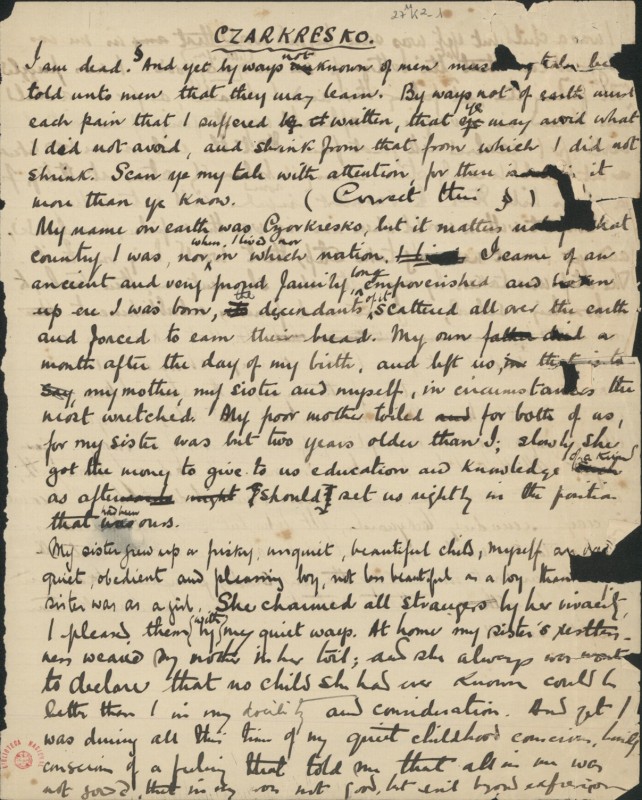 27 11/2 1
CZARKRESKO.
I am dead. And yet by ways not known of men must tale be
told unto men that they may learn. By ways not of earth must
each pain that I suffered be written, that ye may avoid what
I did not avoid, and shrink from that from which I did not
shrink. Scan ye my tale with attention, for there is in it
more than ye know. (Correct this)
My name on earth was Czorkresko, but it matters not what
country I was, nor when I lived nor in which nation. I came of an
ancient and very proud family, long empoverished and
up ere I was born, the descendants of it scattered all over the earth
and forced to earn their bread. My own father died a
month after the day of my birth, and left us, in that is to
say, my mother, my sister and myself, in circumstances the
most wretched. My poor mother toiled and for both of us,
for my sister was but two years older than I; slowly she
got the money to give to us education and knowledge of a kind
as afterwards might should set us rightly in the position
that had been ours.
My sister grew up a frisky, unquiet, beautiful child; myself a
quiet, obedient and pleasing boy, not less beautiful as a boy than
sister was as a girl. She charmed all strangers by her vivacity,
I pleased them with by my quiet ways. At home my sister's restless-
ness wearied my mother in her toil; and she always was wont
to declare that no child she had ever known could be
better than I in my docility and consideration. And yet I
was during all this time of my quiet childhood conscious,
conscious of a feeling that told me that all in me was
not good, that in my was not good, but evil beyond expression